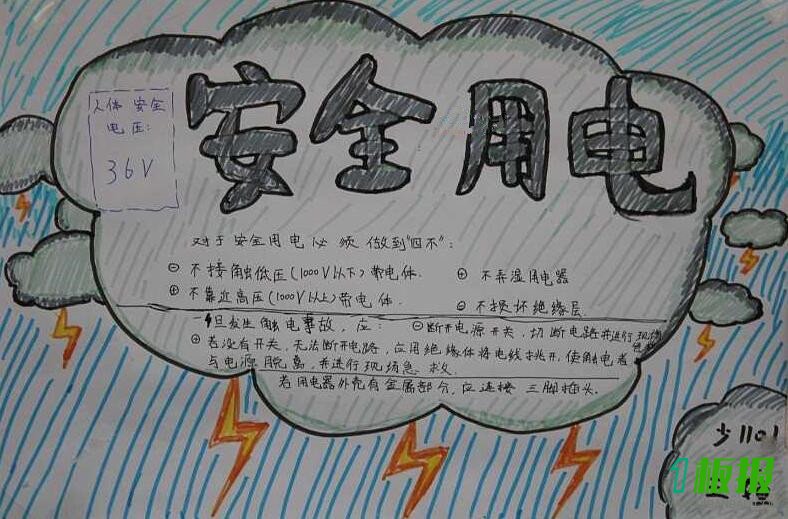 安全用电
人体 安全
电压:
36V
对于安全用电必须做到"四不":
⊖ 不接触低压(1000V以下)带电体. ⊕ 不弄湿用电器
⊕ 不靠近高压(1000V以上)带电体. ⊖ 不损坏绝缘层.
一旦发生触电事故, 应: ⊖断开电源开关, 切断电路并进行现场
⊕若没有开关, 无法断开电路, 应用绝缘体将电线挑开, 使触电者
与电源脱离, 并进行现场急救.
若用电器外壳有金属部分, 应连接 三脚插头.
少1101
板报